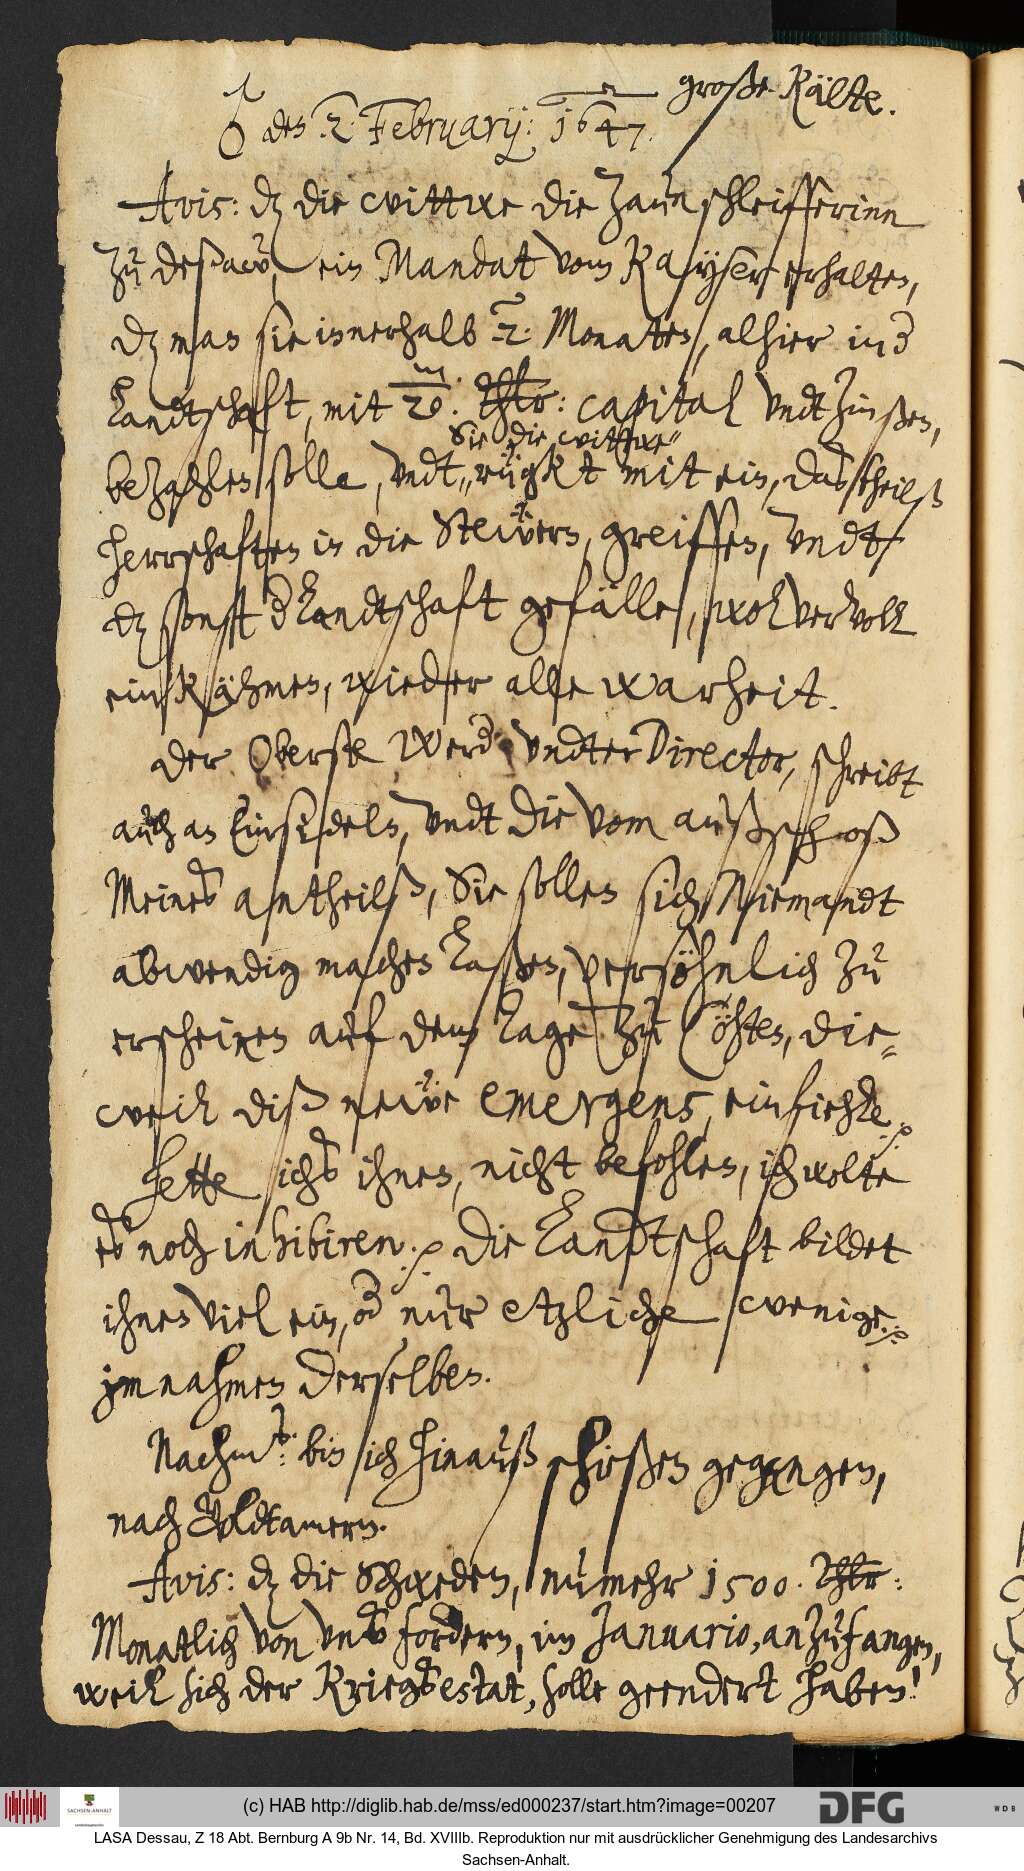 ♂ den 2. Februarij: 1647. große Kälte.
Avis: dz die wittwe die Zaunschleifferinn
zu Deßaw, ein Mandat vom Kayser erhalten,
dz man sie innerhalb 2. Monaten, alhier in der
Landtschaft, mit 20/m. Thlr: capital undt Zinßen,
bezahlen solle, undt
Sie die wittwe
rügkt mit ein, das theilß
herrschaften in die Steẅern, greiffen, undt
dz sonst der Landtschaft gefälle, wol
einkähmen, wieder alle warheit.
der Oberste Werder undter Director, schreibt
auch an Einsideln, undt die vom außschoß
Meines antheilß, Sie sollen sich Niemandt
abwendig machen laßen, persöhnlich zu
erscheinen auf dem Tage zu Cöhten, die-
weil diß neẅe emergens, einfiehle.
Hette ichs ihnen, nicht befohlen, ich wolte
es noch inhibiren. Die Landtschaft bildet
ihnen viel ein, oder nur etzliche wenige.
im nahmen derselben.
Nachmits: bin ich hinauß schießen gegangen,
nach
Avis: dz die Schweden, numehr 1500. Thlr:
Monatlich von uns fordern, im Januario, anzufangen,
weil sich der Kriegsestat, solle geendert haben!
(c) HAB http://diglib.hab.de/mss/ed000237/start.htm?image=00207
SACHSEN-ANHALT
DFG
WDB
LASA Dessau, Z 18 Abt. Bernburg A 9b Nr. 14, Bd. XVIIIb. Reproduktion nur mit ausdrücklicher Genehmigung des Landesarchivs
Sachsen-Anhalt.